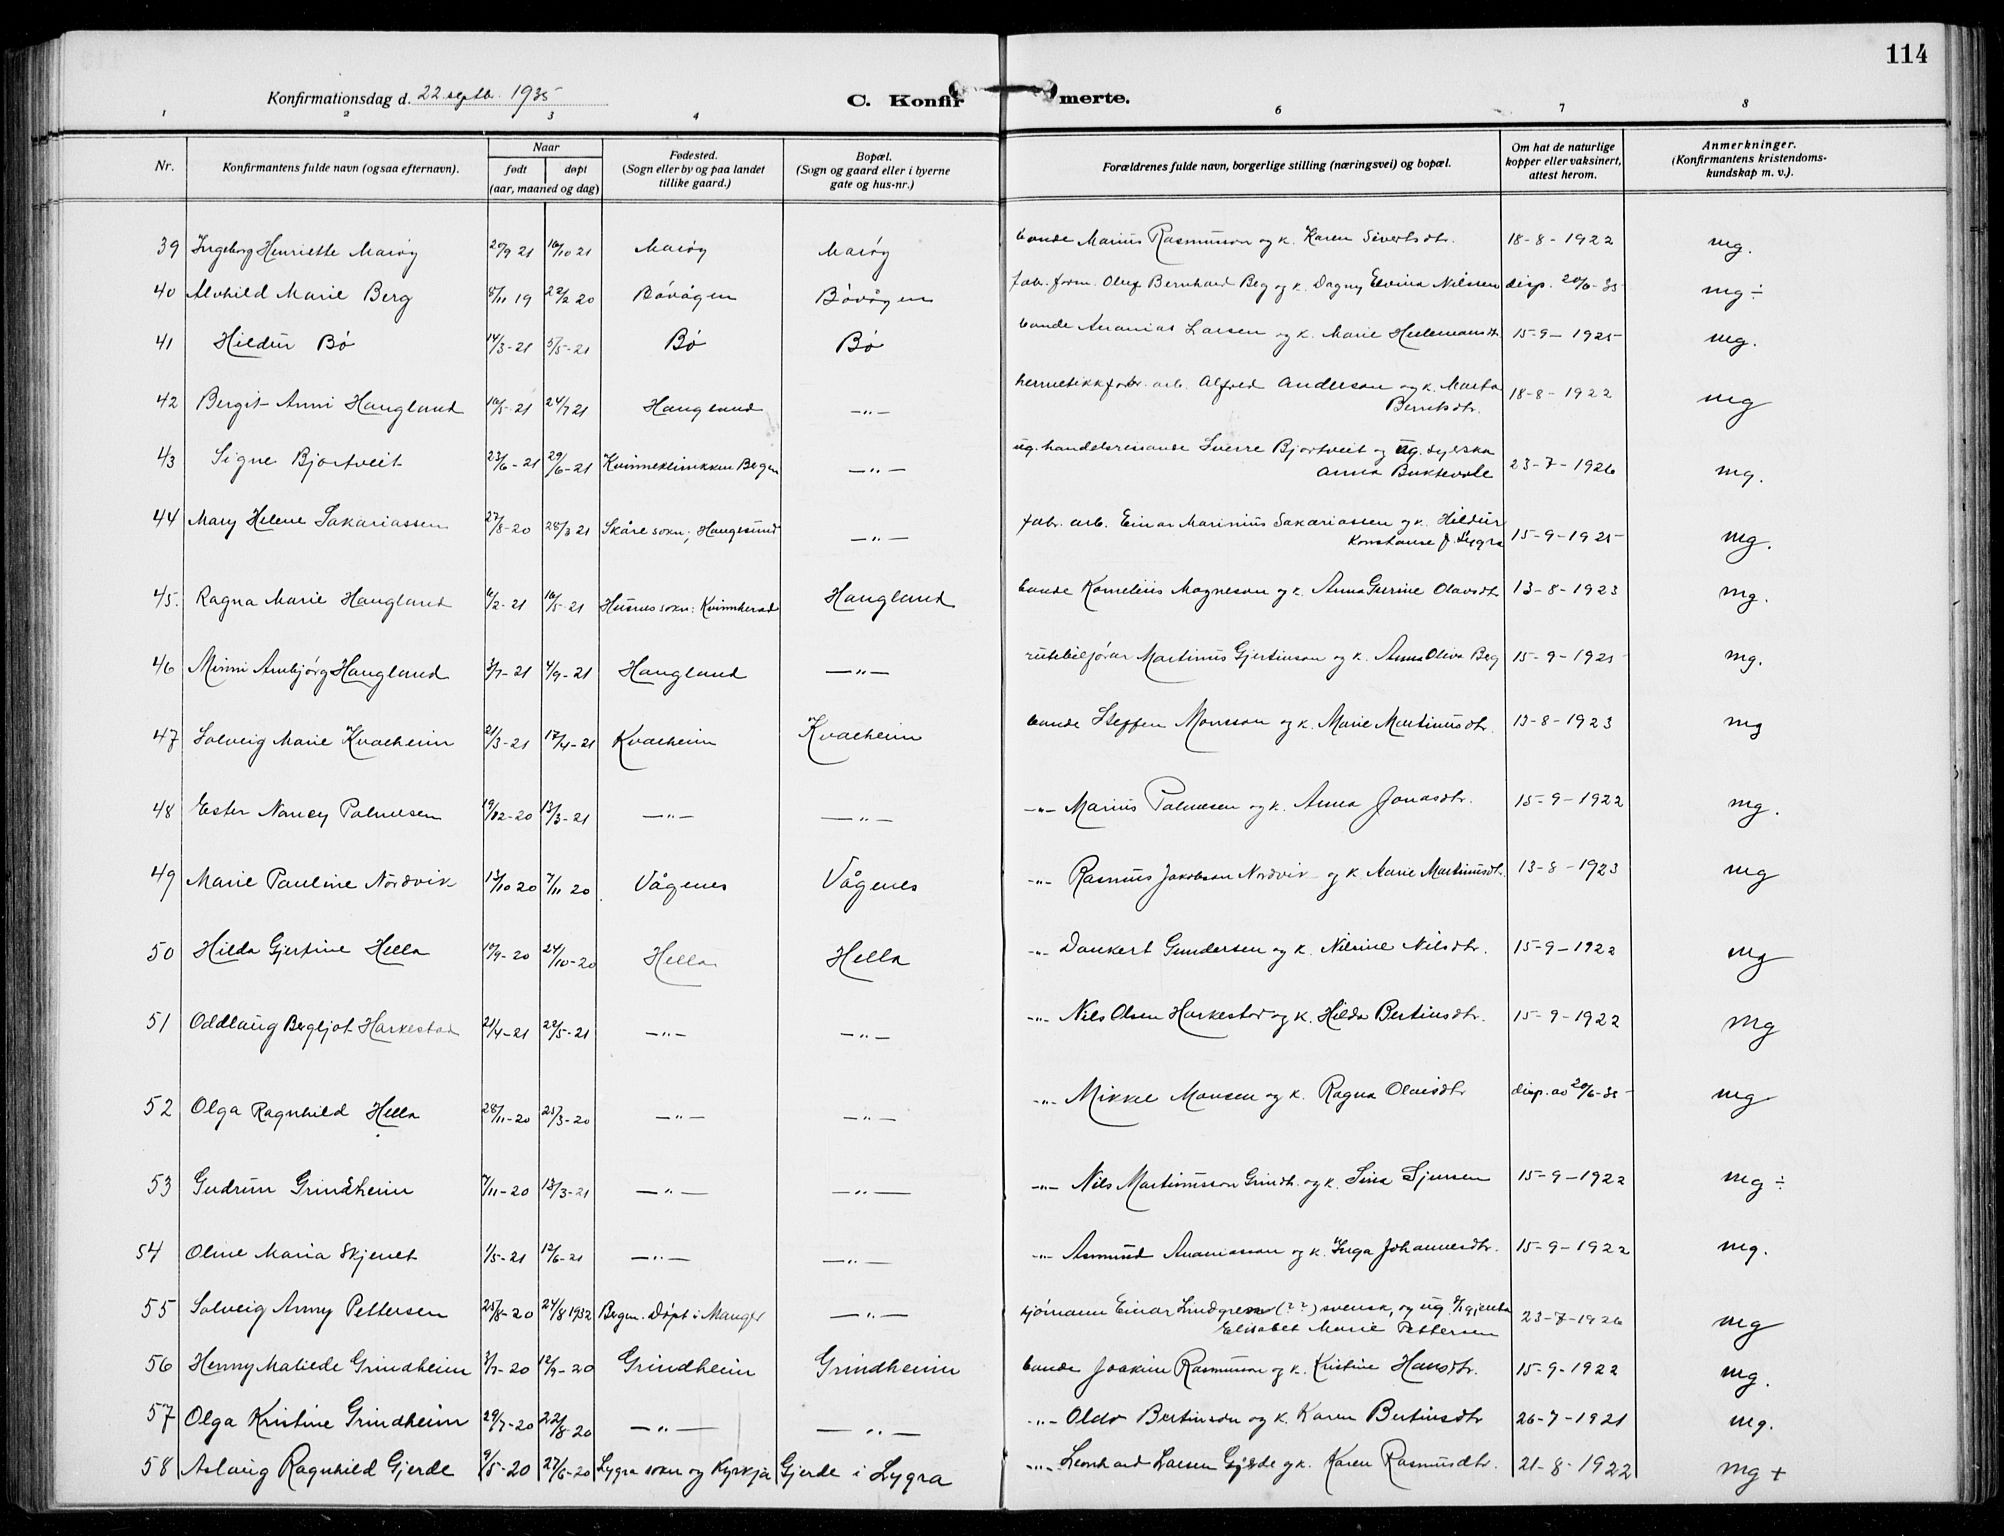 114
Konfirmationsdag d. 22 septbr. 1935
C. Konfirmerte.
1 2 3 4 6 7 8
Nr. Konfirmantens fulde navn (ogsaa efternavn). Naar født døpt (aar, maaned og dag) Fødested. (Sogn eller by og paa landet tillike gaard.) Bopæl. (Sogn og gaard eller i byerne gate og hus-nr.) Forældrenes fulde navn, borgerlige stilling (næringsvei) og bopæl. Om hat de naturlige kopper eller vaksinert, attest herom. Anmerkninger. (Konfirmantens kristendoms-kundskap m. v.).
39 Ingeborg Henriette Marøy 20/9 21 16/10 21 Marøy Marøy bonde Marius Rasmusson og k. Karen Sivertsdtr. 18-8-1922 mg.
40 Alvhild Marie Berg 8/11 19 22/2 20 Bøvågen Bøvågen fabr. form. Oluf Bernhard Berg og k. Dagny Elvina Nilssen disp. 20/6-35 mg ÷
41 Hildur Bø 14/3-21 5/5-21 Bø Bø bonde Ananias Larsen og k. Marie 15-9-1925 mg.
42 Bergit Anni Haugland 16/5-21 24/7 21 Haugland —"— hermetikkfabr. arb. Alfred Anderson og k. Marta Berntsdtr. 18-8-1922 mg
43 Signe Bjortveit 23/6-21 29/6-21 Kvinneklinikken Bergen —"— ug. handelsreisande Sverre Bjortveit og ug. syerska Anna 23-7-1926 mg.
44 Mary Helene Sakariassen 27/8-20 28/3 21 Skåre sokn, Haugesund —"— fabr. arb. Einar Marinius Sakariassen og k. Hildur Konstanse f. Lygra 15-9-1925 mg.
45. Ragna Marie Haugland 6/2-21 16/5-21 Husnes sokn: Kvinnherad Haugland bonde Kornelius Magneson og k. Anna Gurine Olavsdtr 13-8-1923 mg.
46 Minni Ambjørg Haugland 3/7-21 4/9-21 Haugland —"— rutebilførar Martinus Gjertinson og k. Anna Oliva Berg 15-9-1925 mg.
47 Solveig Marie Kvalheim 21/3-21 17/4-21 Kvalheim Kvalheim bonde Steffen Monsson og k. Marie Martinusdtr. 13-8-1923 mg
48 Ester Nancy Palmesen 19/12-20 13/3-21 —"— —"— —"— Marius Palmesen og k. Anna Jonasdtr. 15-9-1922 mg.
49 Marie Pauline Nordvik 13/10 20 7/11 20 Vågenes Vågenes —"— Rasmus Jakobson Nordvik og k. Marie Martinusdtr. 13-8-1923 mg
50 Hilda Gjertine Hella 10/9-20 24/10-20 Hella Hella —"— Dankert Gundersen og k. Nilsine Nilsdtr. 15-9-1922 mg
51 Oddlaug Bergljot Harkestad 21/4-21 22/5-21 —"— —"— —"— Nils Olsen Harkestad og k. Hilda Bertinsdtr. 15-9-1922 mg
52 Olga Ragnhild Hella 28/11-20 25/3-20 —"— —"— —"— Mikkel Monsen og k. Ragna Olaisdtr disp. av 20/6-35 mg
53 Gudrun Grindheim 7/11-20 13/3-21 —"— —"— —"— Nils Martinusson Grindh. og k. Sina Sjursen 15-9-1922 mg ÷
54 Oline Maria Skjenet 1/5-21 12/6-21 —"— —"— —"— Asmund Ananiasson og k. Inga Johannesdtr. 15-9-1922 mg.
55 Solveig Anny Pettersen 25/8-20 24/8 1932 Bergen. Døpt i Manger —"— sjømann Einar Lindgren (??) svensk, og ug. Elisabet Marie Pettersen 23-7-1926 mg
56 Henny Matilde Grindheim 3/7-20 12/9-20 Grindheim Grindheim bonde Joakim Rasmusson og k. Kristine Hansdtr. 15-9-1922 mg.
57 Olga Kristine Grindheim 29/7-20 22/8-20 —"— —"— —"— Oldo Bertinson og k. Karen Bertinsdtr 26-7-1921 mg.
58 Aslaug Ragnhild Gjerde 9/5-20 27/6-20 Lygra sokn og Kyrkja Gjerde i Lygra —"— Leonhard Larsen Gjerde og k. Karen Rasmusdtr. 21-8-1922 mg +